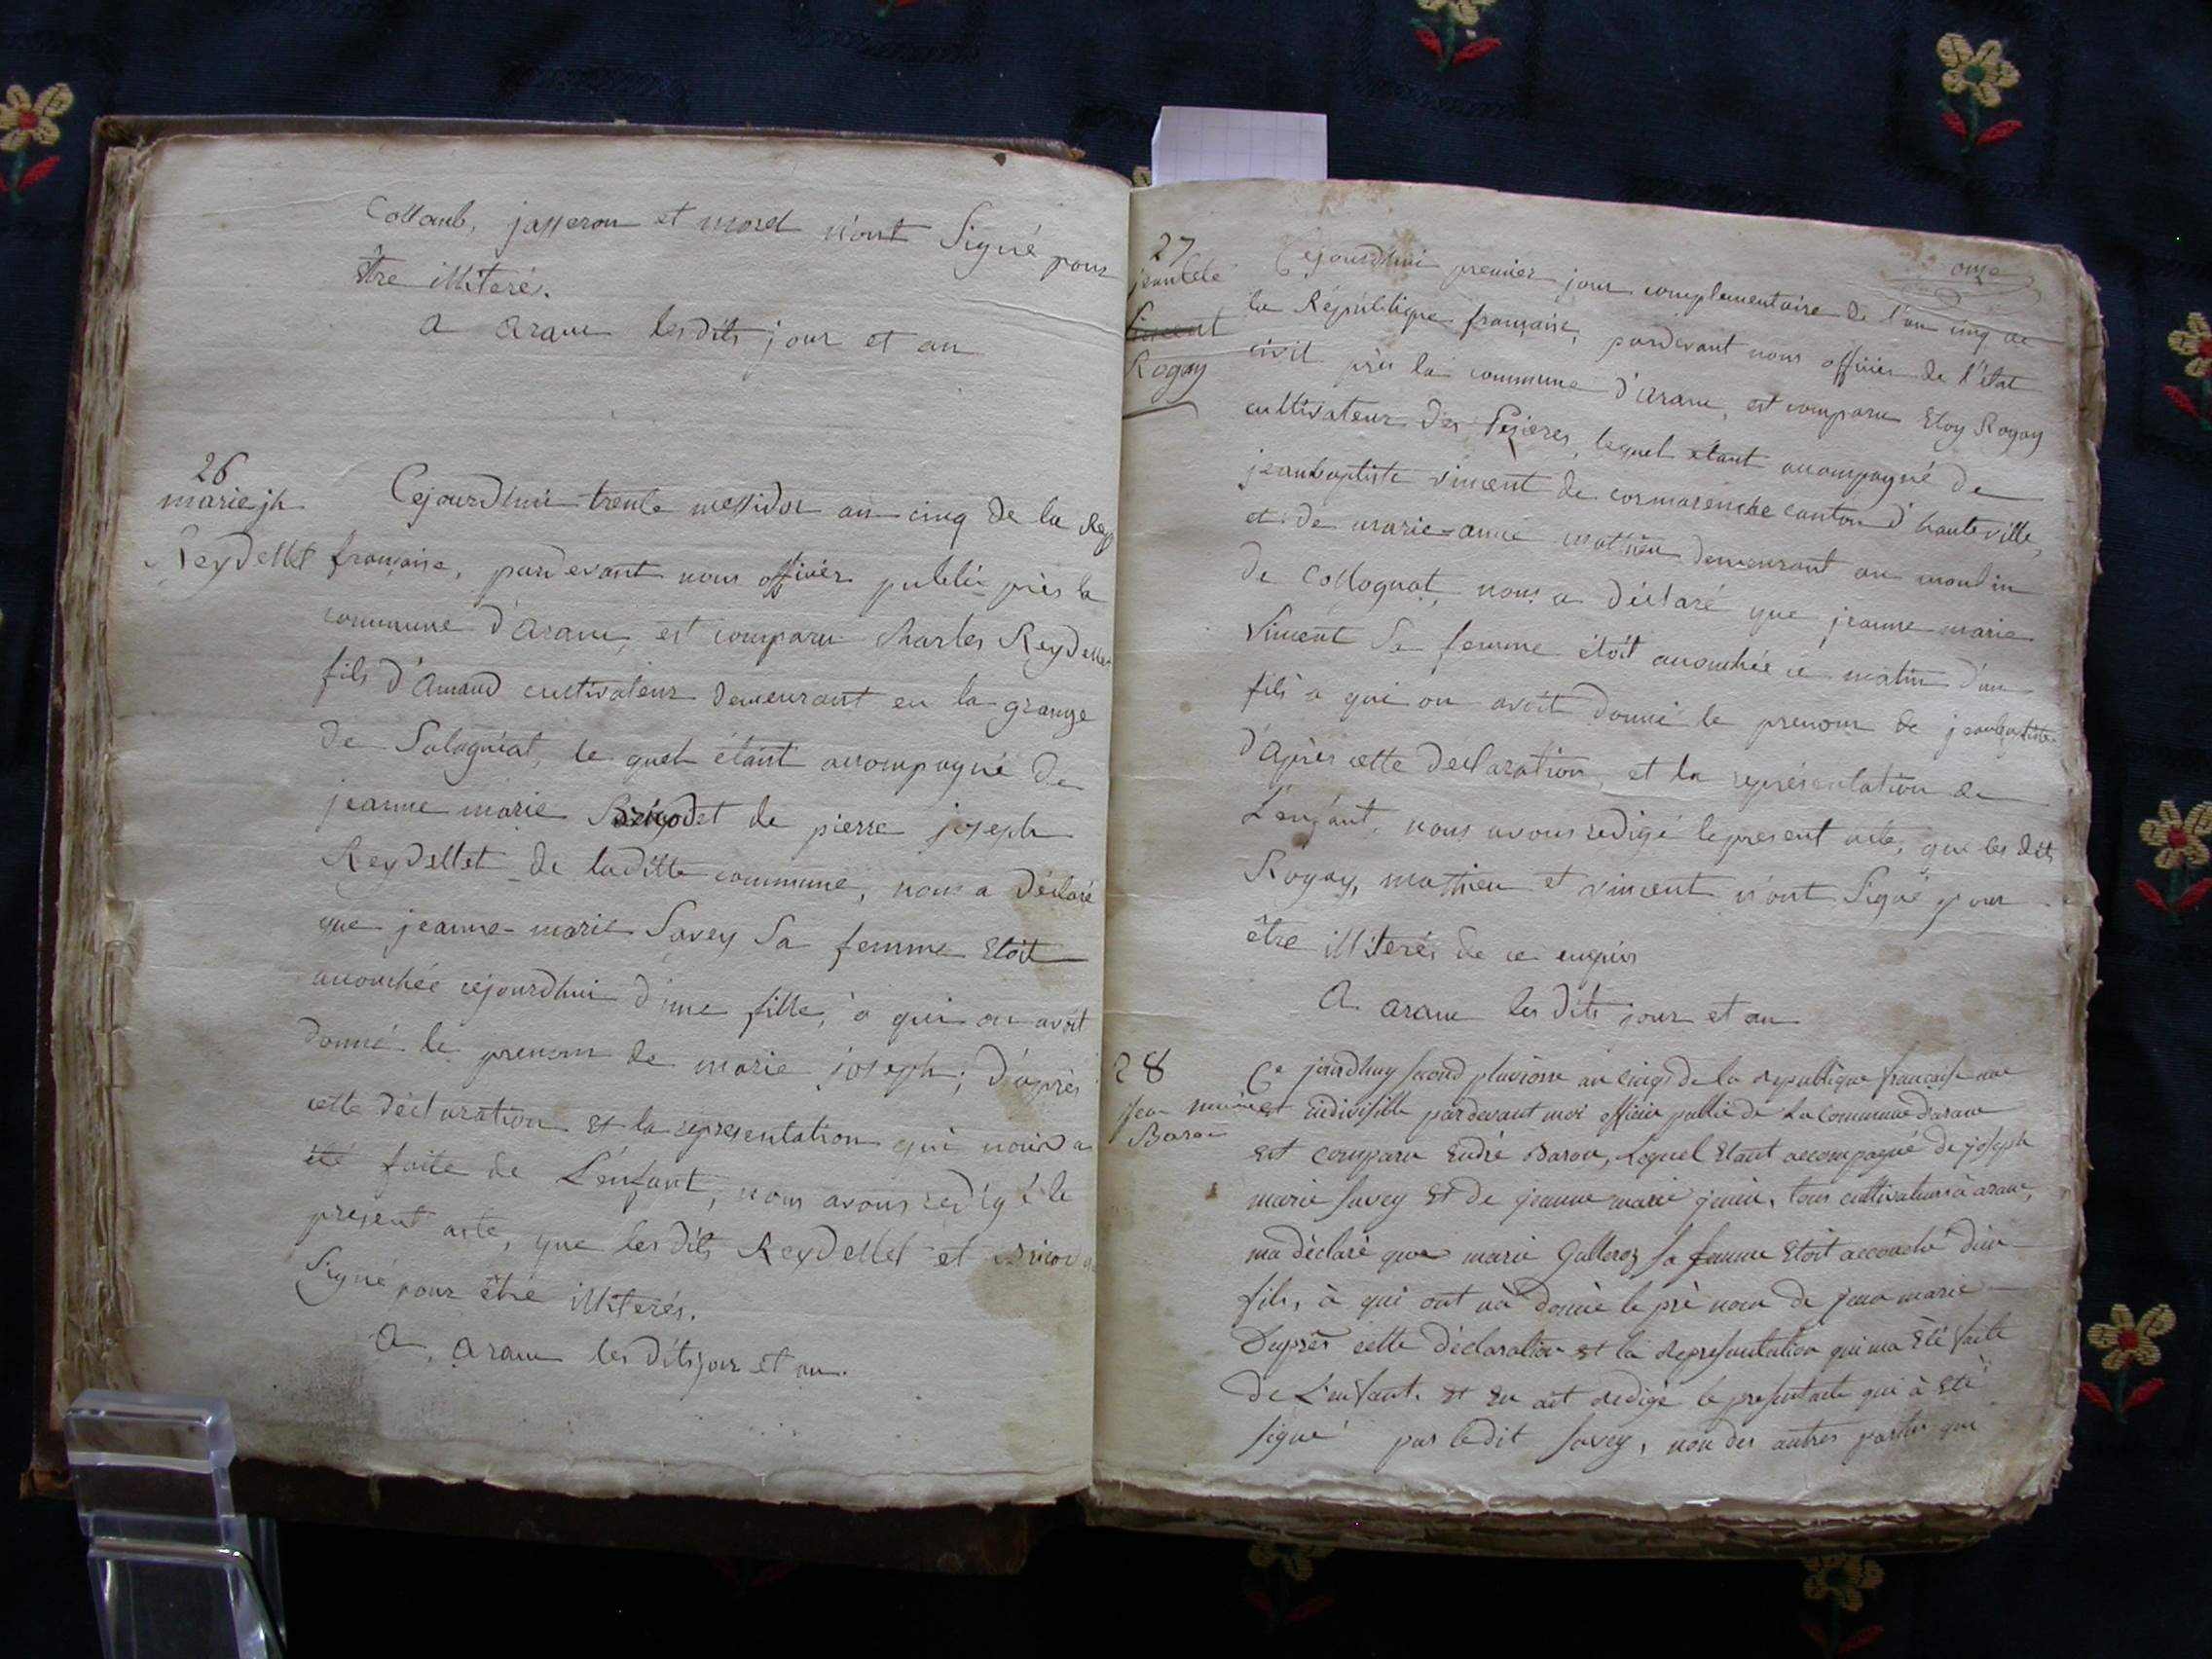 Collomb, jasseron et morel n'ont Signé pour
être illiteré.
a aranc les dits jour et an
26
marie jh
Reydellet
Cejourdhui trente messidor an cinq de la Rep
française, pardevant nous officier public près la
commune d'aranc, est comparu Charles Reydellet
fils d'Amand cultivateur demeurant en la grange
de Solognat, le quel étant accompagné de
jeanne marie Brigodet de pierre joseph
Reydellet de laditte commune, nous a déclaré
que jeanne-marie Savey Sa femme Etoit
accouchée cejourdhui d'une fille, à qui on avoit
donné le prenom de marie joseph; d'après
cette déclaration et la representation qui nous a
été faite de L'enfant, nous avons redigé le
present acte, que les dits Reydellet et
Signé pour être illiterés.
a aranc les dits jour et an.
onze
27
jeanbte
Vincent
Rogay
Cejourdhui premier jour complementaire de l'an cinq de
la République française, pardevant nous officier de l'état
civil près la commune d'aranc, est comparu Eloy Rogay
cultivateur des Pezieres, lequel étant accompagné de
jeanbaptiste vincent de cormarenche canton d'hauteville,
et de marie-anne mathieu demeurant au moulin
de Collognat, nous a déclaré que jeanne marie
Vincent Sa femme étoit accouchée ce matin d'un
fils a qui on avoit donné le prenom de jeanbaptiste
d'après cette déclaration, et la représentation de
L'enfant, nous avons redigé lepresent acte, que les dits
Rogay, mathieu et vincent n'ont Signé pour
être illiterés de ce enquis
a aranc les dits jour et an
28
jean marie
Baron
Ce jourdhuy second pluviose an cinq de la republique française une
et indivisible pardevant moi officier public de La commune d'aranc
est comparu Baron, Lequel Etant accompagné de joseph
marie Savey et de jeanne marie jenin, tous cultivateurs à aranc,
ma déclaré que marie Galleroz Sa femme Etoit accouché d'un
fils, à qui ont na donné le pré nom de jean marie
Dapres cette déclaration et la representation qui ma été faite
de L'enfant. et en ait redigé le present acte qui à Eté
signé par ledit Savey, non des autres parties qui